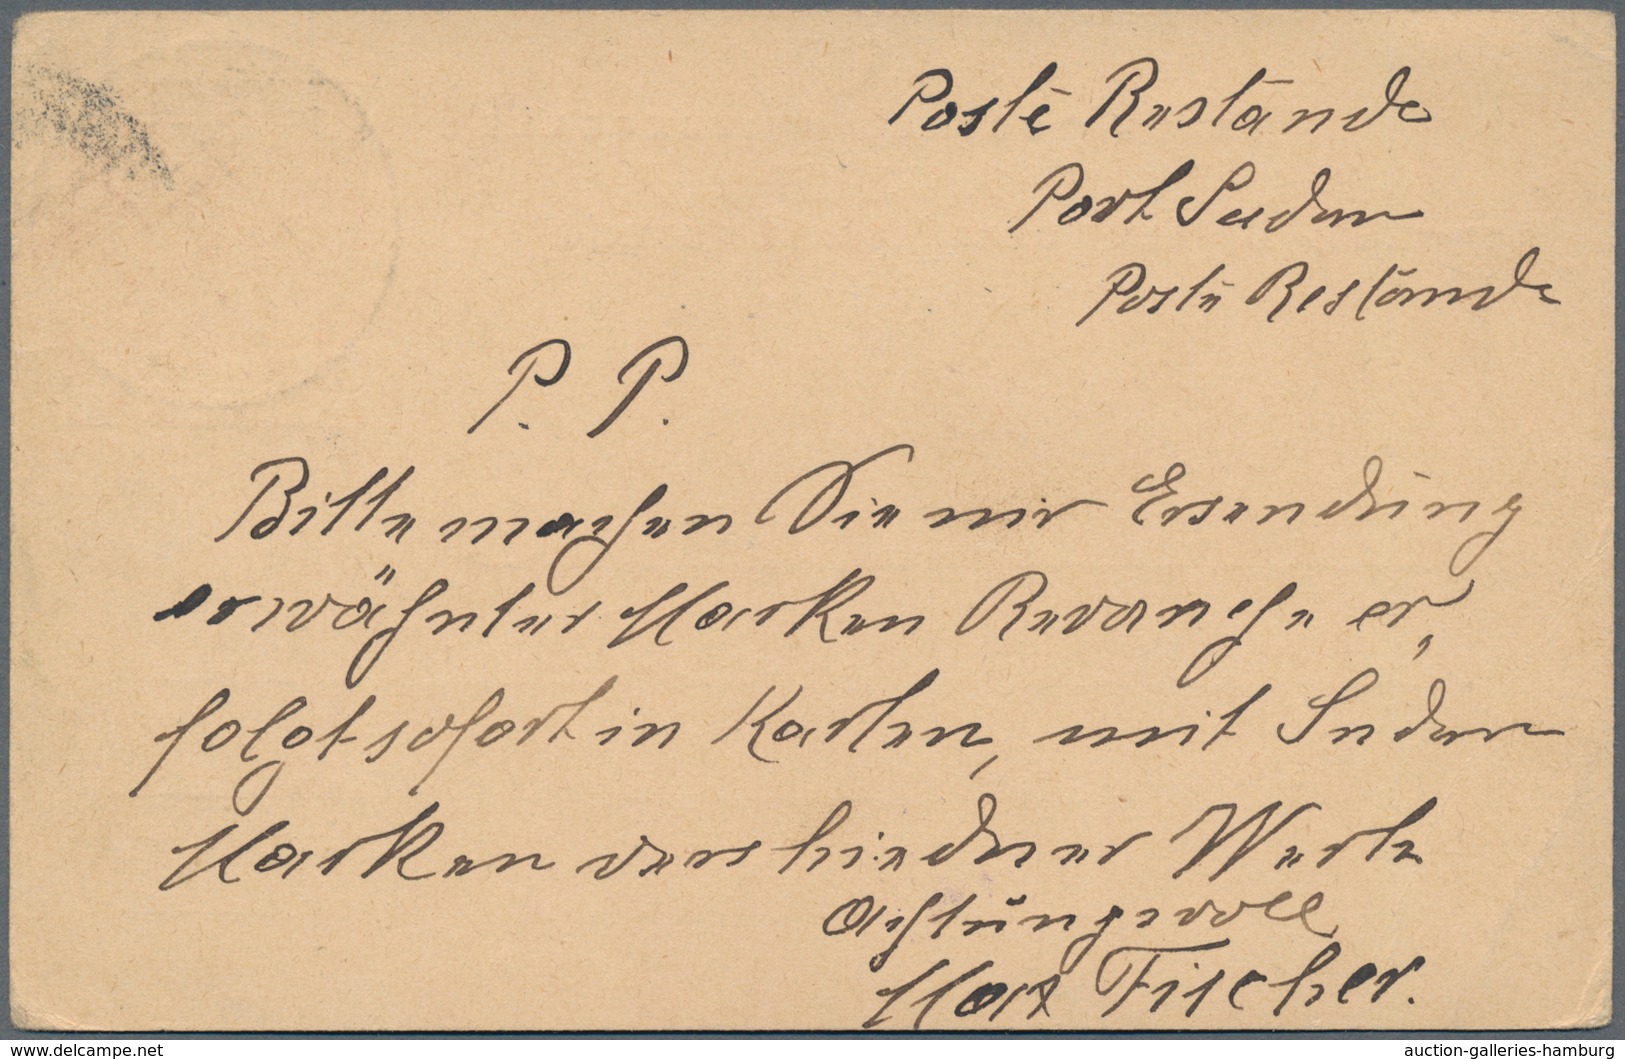 Poste Restande
Port Sudan
Poste Restande
P. P.
Bitte machen Sie mir Ersendung
erwähnter Marken Revanche er,
folgt sofort in Karten, mit Sudan
Marken verschiedner Werte
Achtungsvoll
Max Fischer.
delcampe.net
auction-galleries-hamburg